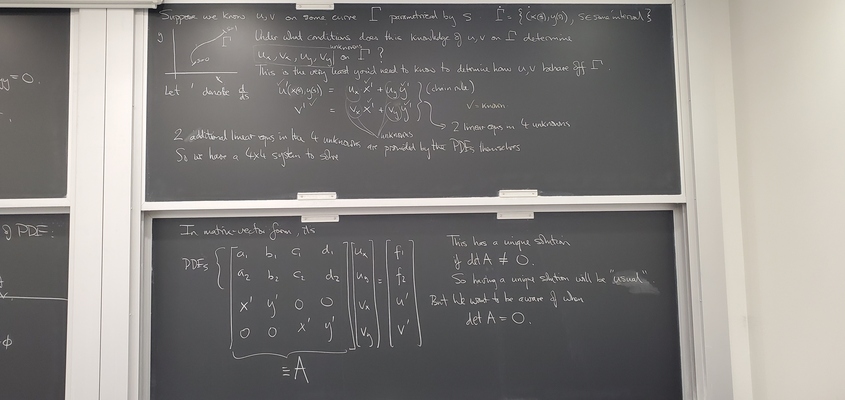 yy = 0.
Suppose we know u, v on some curve Γ parametrized by s. Γ = { (x(s), y(s)), s ∈ some interval }
y
Γ
x
Under what conditions does this knowledge of u, v on Γ determine
unknowns
u_x, v_x, u_y, v_y on Γ ?
This is the very least you'd need to know to determine how u, v behave off Γ.
Let ' denote d/ds
u'(x(s), y(s)) = u_x x' + u_y y' (chain rule)
v' = v_x x' + v_y y'
✓ = known
unknowns
→ 2 linear eqns in 4 unknowns
2 additional linear eqns in the 4 unknowns are provided by the PDEs themselves
So we have a 4x4 system to solve
of PDE:
φ
In matrix-vector form, its
PDEs
a₁ b₁ c₁ d₁ u_x = f₁
a₂ b₂ c₂ d₂ u_y f₂
x' y' 0 0 v_x u'
0 0 x' y' v_y v'
≡ A
This has a unique solution
if det A ≠ 0.
So having a unique solution will be "usual"
But we want to be aware of when
det A = 0.